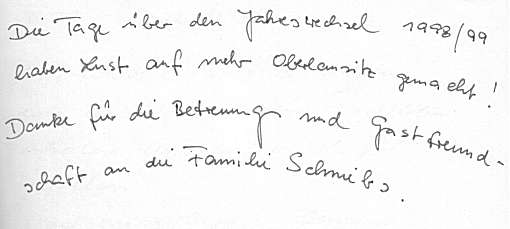 Die Tage über den Jahreswechsel 1998/99
haben Lust auf mehr Oberlausitz gemacht!
Danke für die Betreuung und Gastfreund-
schaft an die Familie